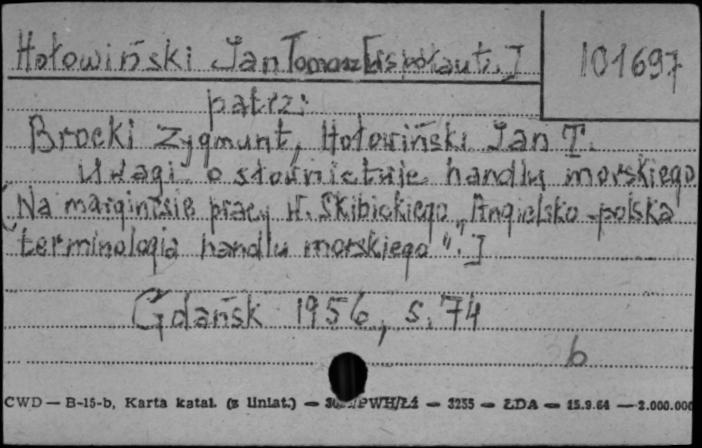 Hołowiński Jan Tomasz [współaut.]
101697
patrz:
Brocki Zygmunt, Hołowiński Jan T.
Uwagi o słownictwie handlu morskiego
(Na marginesie pracy W. Skibickiego „Angielsko-polska
terminologia handlu morskiego".]
Gdańsk 1956, s. 74
b
CWD — B-15-b, Karta katal. (z liniat.) — /PWH/Ł1 — 3255 — ŁDA — 15.9.64 — 3.000.000